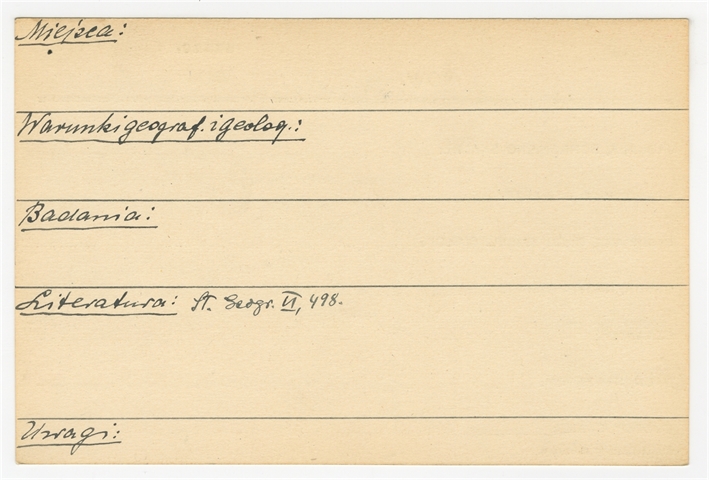 Miejsca:
Warunki geograf. i geolog.:
Badania:
Literatura: Sł. Geogr. VI, 498.
Uwagi: